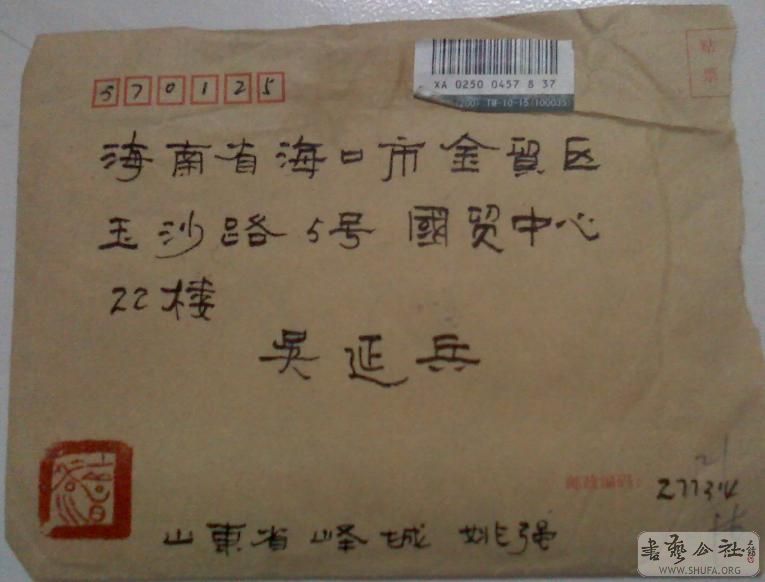 贴票
XA 0250 0457 8 37
2001 TM-10-15(100035
570125
海南省海口市金貿区
玉沙路5号國贸中心
22楼
吴延兵
邮政编码：277314
山東省峄城 姚强
書藝公社
WWW.SHUFA.ORG